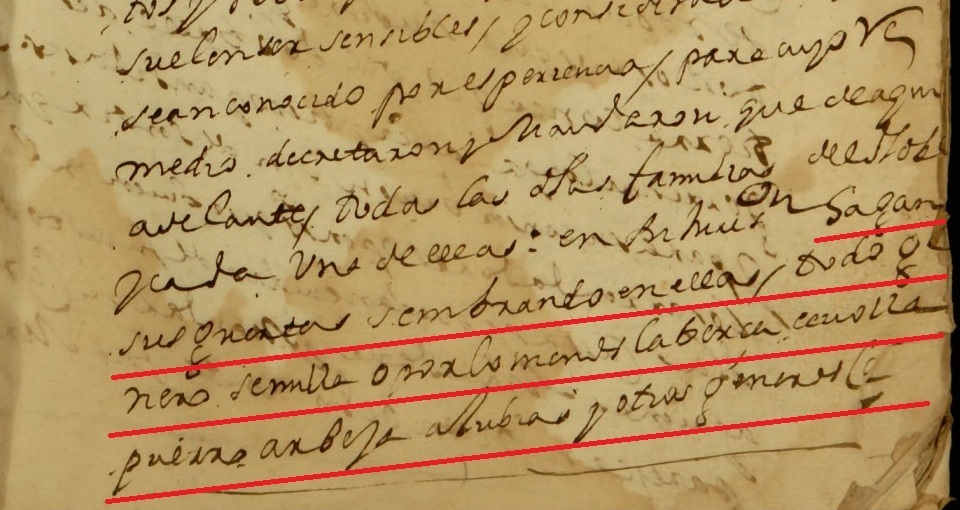 suelen ser sensibles, y considerado
sean conocido por esperiencia, para cuyo Re
medio decretaron y Mandaron que de aqui
adelante, todas las dhas familias
y cada Una de ellas en
On hagan
sus guertas sembrando en ellas, todo ge
nero semilla o por lo menos la berza cevolla
puerro arbeja alubias y otros generos